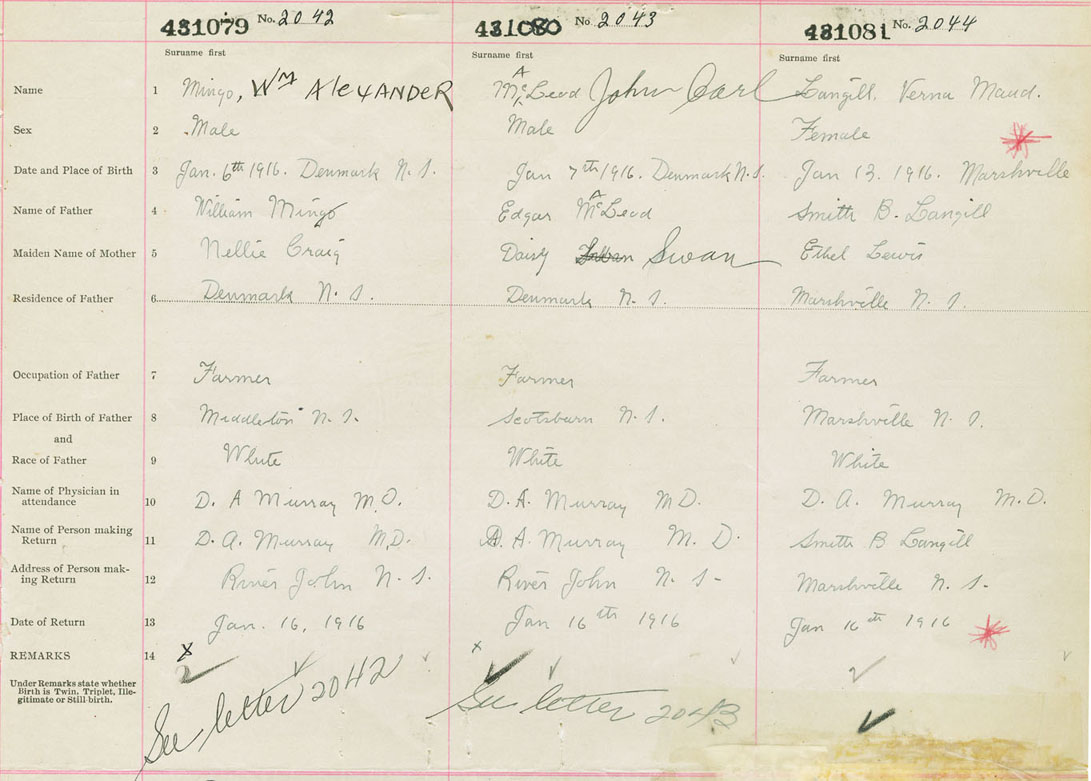 431079 No. 2042 431080 No. 2043 431081 No. 2044
Surname first Surname first Surname first
Name 1 Mingo, Wm Alexander McLeod John Carl Langill. Verna Maud.
Sex 2 Male Male Female
Date and Place of Birth 3 Jan. 6th 1916. Denmark N.S. Jan 7th 1916. Denmark N.S. Jan 13. 1916. Marshville
Name of Father 4 William Mingo Edgar McLeod Smith B. Langill
Maiden Name of Mother 5 Nellie Craig Daisy Swan Ethel Lewis
Residence of Father 6 Denmark N.S. Denmark N.S. Marshville N.S.
Occupation of Father 7 Farmer Farmer Farmer
Place of Birth of Father 8 Middleton N.S. Scotsburn N.S. Marshville N.S.
and
Race of Father 9 White White White
Name of Physician in
attendance 10 D. A Murray M.D. D.A. Murray MD. D. A. Murray M.D.
Name of Person making
Return 11 D. A. Murray M.D. D. A. Murray M.D. Smith B Langill
Address of Person mak-
ing Return 12 River John N.S. River John N.S- Marshville N.S.
Date of Return 13 Jan. 16, 1916 Jan 16th 1916 Jan 16th 1916
REMARKS 14 x x
Under Remarks state whether
Birth is Twin, Triplet, Ille-
gitimate or Still-birth.
See letter 2042 See letter 2043